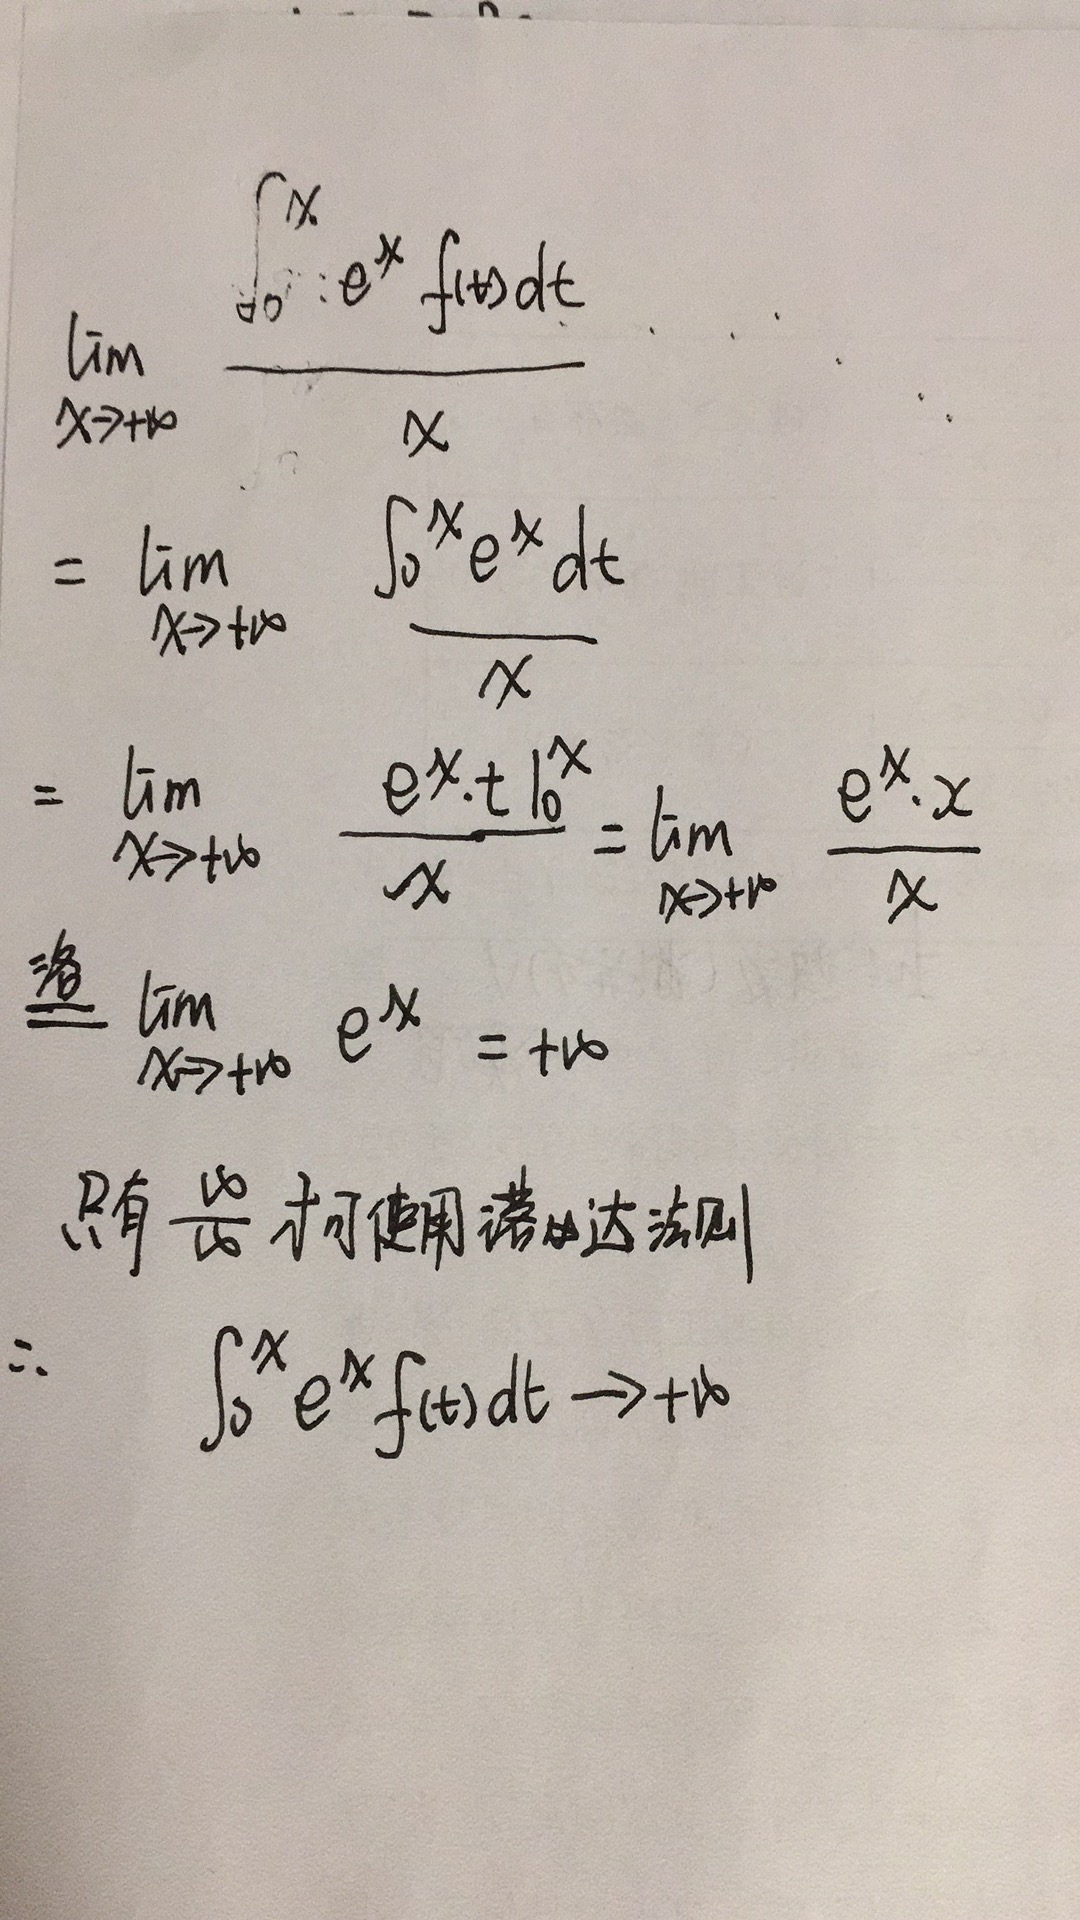 lim x→+∞ ∫₀ˣ eˣ f(t)dt / x
= lim x→+∞ ∫₀ˣ eˣ dt / x
= lim x→+∞ eˣ·t|₀ˣ / x = lim x→+∞ eˣ·x / x
洛 lim x→+∞ eˣ = +∞
只有 ∞/∞ 才可使用洛必达法则
∴ ∫₀ˣ eˣ f(t)dt → +∞